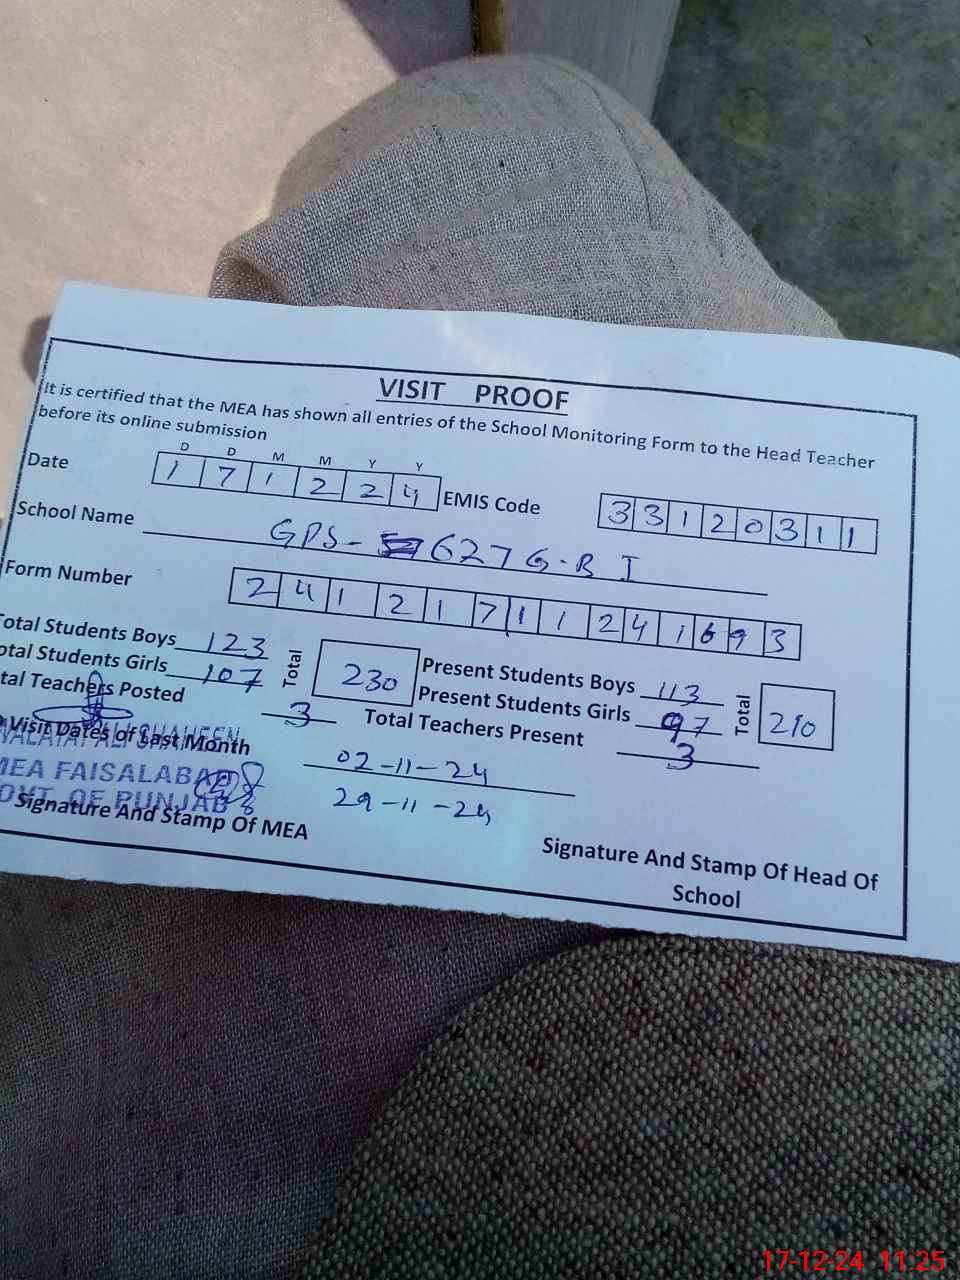 VISIT PROOF
It is certified that the MEA has shown all entries of the School Monitoring Form to the Head Teacher
before its online submission
D D M M Y Y
Date 1 7 1 2 2 4 EMIS Code 3 3 1 2 0 3 1 1
School Name GPS- 627 G.B I
Form Number 2 4 1 2 1 7 1 1 2 4 1 6 9 3
otal Students Boys 123 Total 230 Present Students Boys 113 Total 210
otal Students Girls 107 Present Students Girls 97
tal Teachers Posted 3 Total Teachers Present 3
Visit Dates of Last Month 02-11-24
29-11-24
ALI SHAHEEN
MEA FAISALABAD
OVT. OF PUNJAB
Signature And Stamp Of MEA
Signature And Stamp Of Head Of
School
17-12-24 11:25